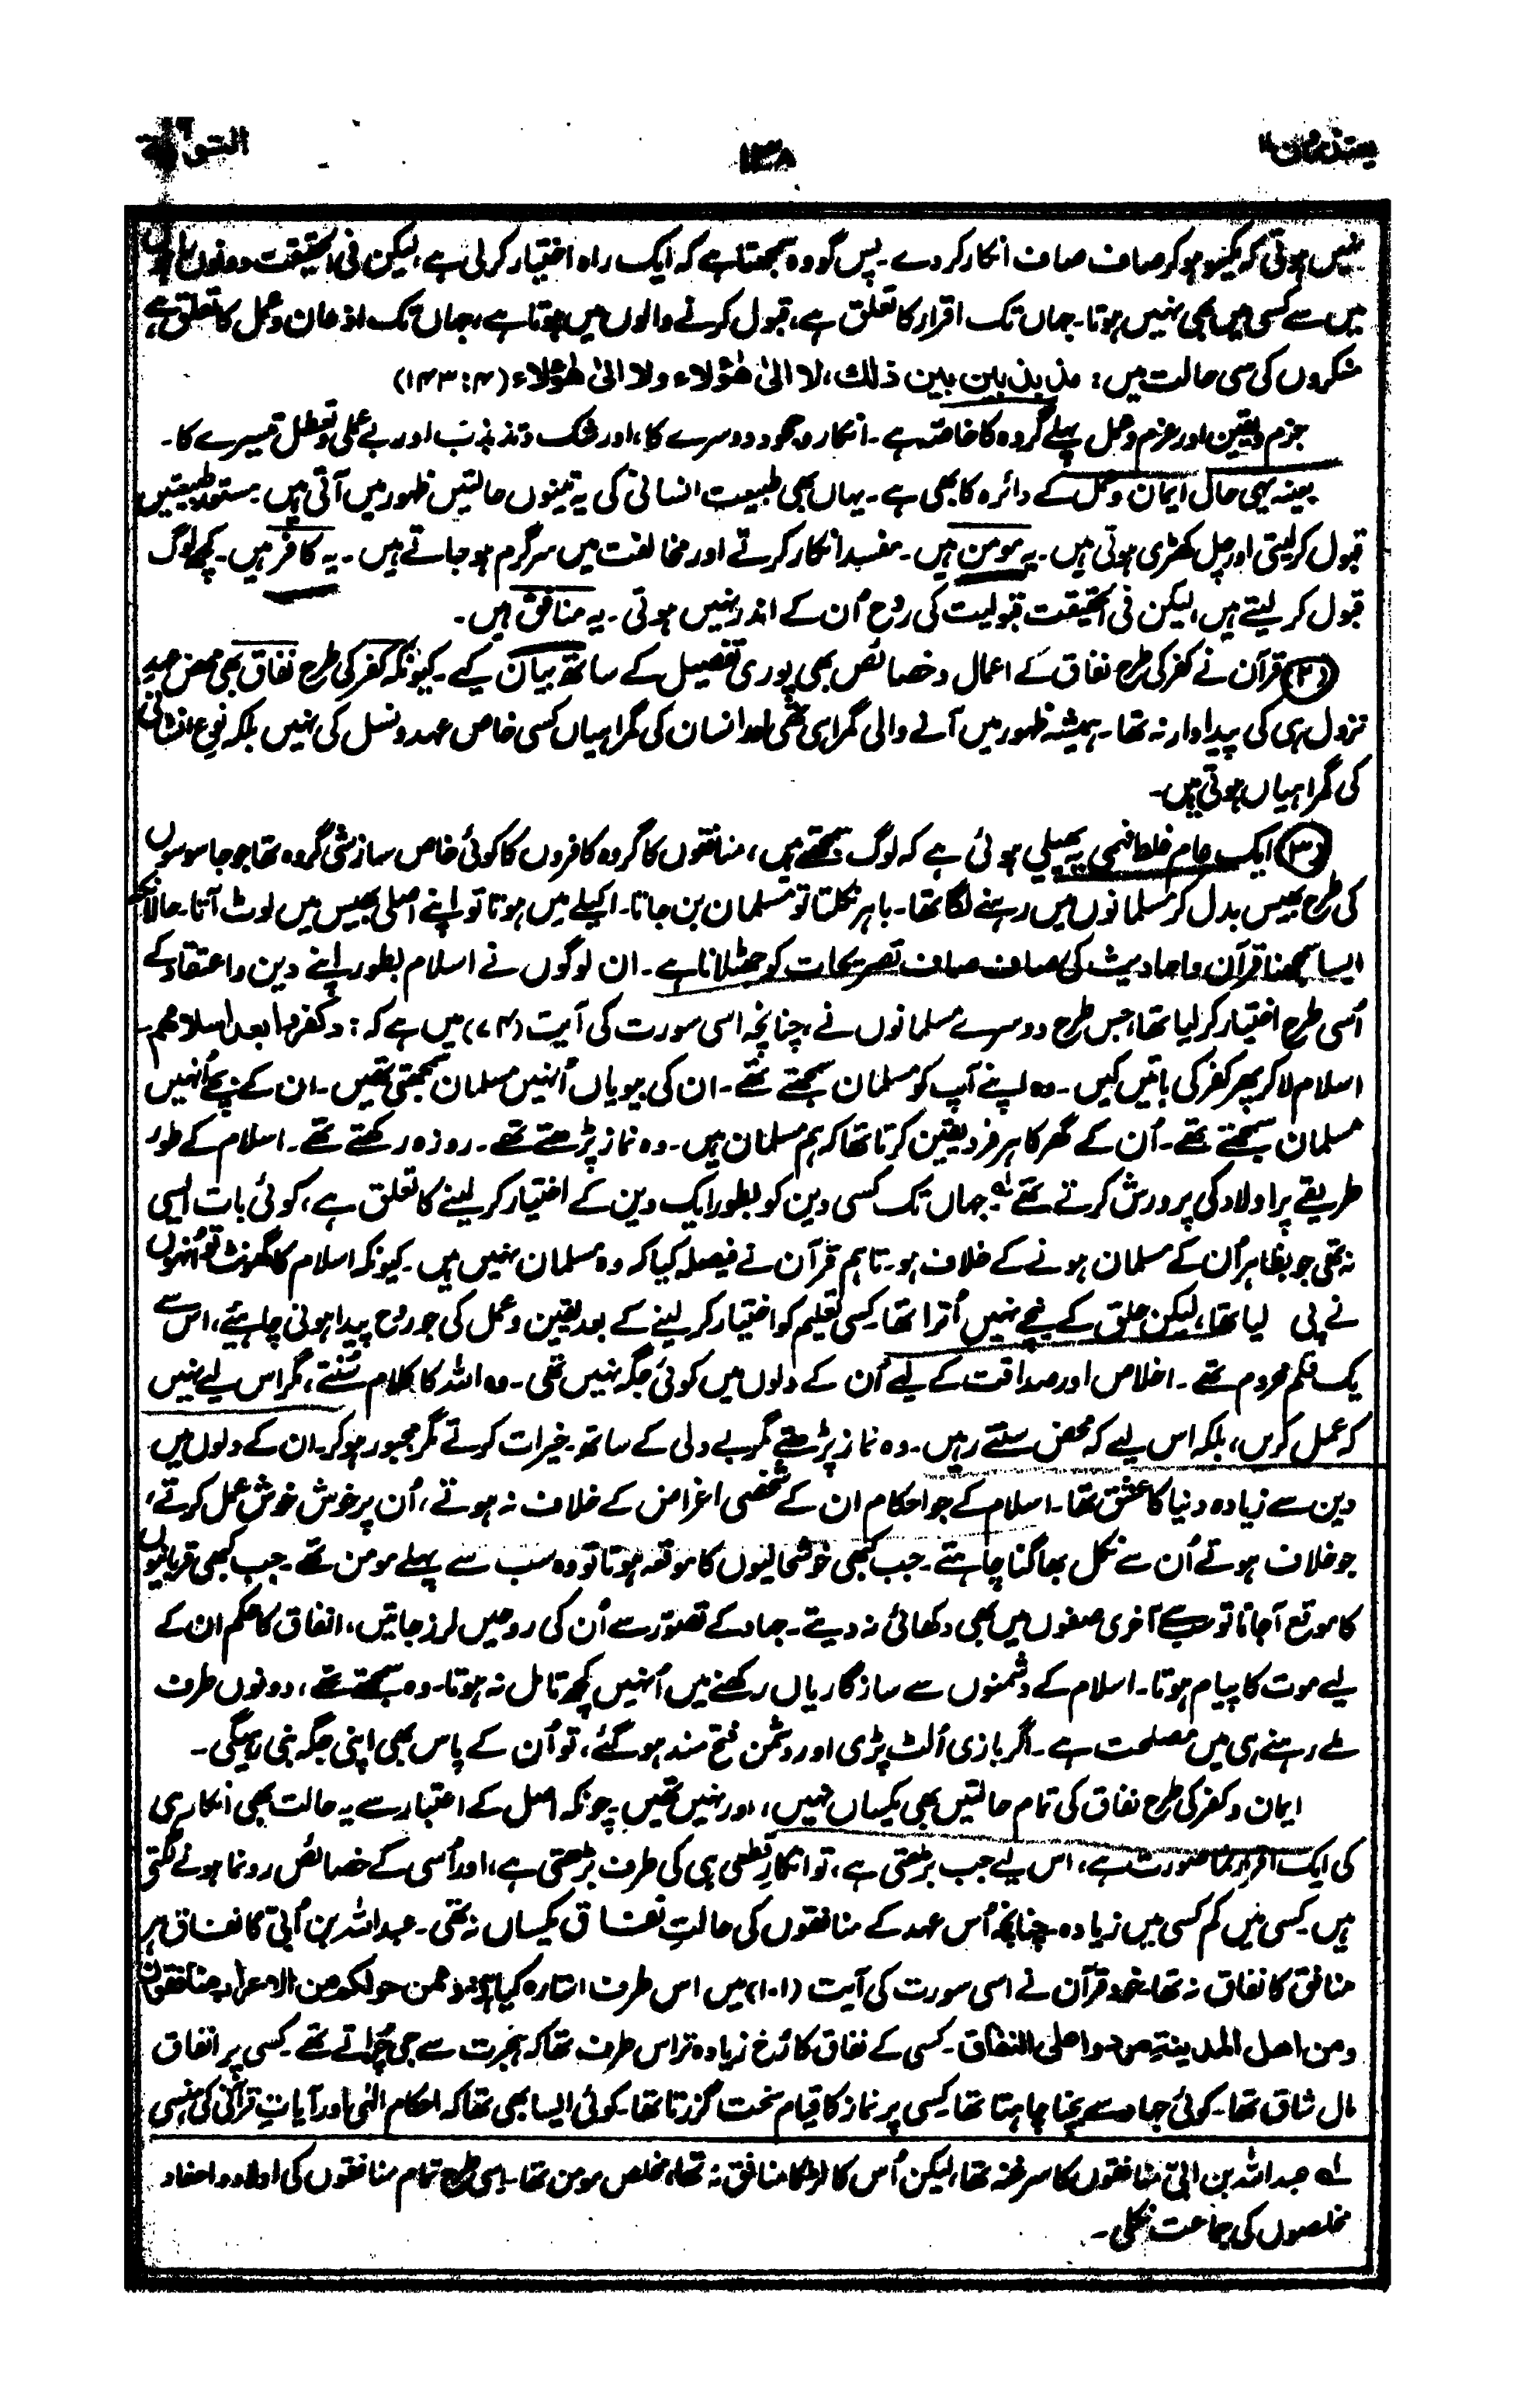 یعتذرون ۱۱
۱۳۸
التوبة ۹
نہیں ہوتی کہ یکسو ہوکر صاف صاف انکار کر دے۔ پس گو وہ سمجھتا ہے کہ ایک راہ اختیار کر لی ہے، لیکن فی الحقیقت دونوں راہوں
میں سے کسی میں بھی نہیں ہوتا۔ جہاں تک اقرار کا تعلق ہے، قبول کرنے والوں میں ہوتا ہے، جہاں تک اذعان و عمل کا تعلق ہے
منکروں کی سی حالت میں: مذبذبین بین ذلك، لا الیٰ ھٰؤلاء ولا الیٰ ھٰؤلاء (۴:۱۴۳)
جزم و یقین اور عزم و عمل پہلے گروہ کا خاصہ ہے۔ انکار و جحود دوسرے کا، اور شک و تذبذب اور بے عملی و تعطل تیسرے کا۔
بعینہ یہی حال ایمان و عمل کے دائرہ کا بھی ہے۔ یہاں بھی طبیعت انسانی کی یہ تینوں حالتیں ظہور میں آتی ہیں۔ مستعد طبیعتیں
قبول کر لیتی اور چل کھڑی ہوتی ہیں۔ یہ مومن ہیں۔ مفسد انکار کرتے اور مخالفت میں سرگرم ہو جاتے ہیں۔ یہ کافر ہیں۔ کچھ لوگ
قبول کر لیتے ہیں، لیکن فی الحقیقت قبولیت کی روح اُن کے اندر نہیں ہوتی۔ یہ منافق ہیں۔
(۲) قرآن نے کفر کی طرح نفاق کے اعمال و خصائص بھی پوری تفصیل کے ساتھ بیان کیے۔ کیونکہ کفر کی طرح نفاق بھی محض عہد
نزول ہی کی پیداوار نہ تھا۔ ہمیشہ ظہور میں آنے والی گمراہی تھی اور انسان کی گمراہیاں کسی خاص عہد و نسل کی نہیں بلکہ نوع انسانی
کی گمراہیاں ہوتی ہیں۔
(۳) ایک عام غلط فہمی یہ پھیلی ہوئی ہے کہ لوگ سمجھتے ہیں، منافقوں کا گروہ کافروں کا کوئی خاص سازشی گروہ تھا جو جاسوسوں
کی طرح بھیس بدل کر مسلمانوں میں رہنے لگا تھا۔ باہر نکلتا تو مسلمان بن جاتا۔ اکیلے میں ہوتا تو اپنے اصلی بھیس میں لوٹ آتا۔ حالانکہ
ایسا سمجھنا قرآن و احادیث کی صاف صاف تصریحات کو جھٹلانا ہے۔ ان لوگوں نے اسلام بطور اپنے دین و اعتقاد کے
اُسی طرح اختیار کر لیا تھا، جس طرح دوسرے مسلمانوں نے، چنانچہ اسی سورت کی آیت (۷۴) میں ہے کہ: وکفروا بعد اسلامھم۔
اسلام لا کر پھر کفر کی باتیں کیں۔ وہ اپنے آپ کو مسلمان سمجھتے تھے۔ ان کی بیویاں اُنہیں مسلمان سمجھتی تھیں۔ ان کے بچے اُنہیں
مسلمان سمجھتے تھے۔ اُن کے گھر کا ہر فرد یقین کرتا تھا کہ ہم مسلمان ہیں۔ وہ نماز پڑھتے تھے۔ روزہ رکھتے تھے۔ اسلام کے طور
طریقے پر اولاد کی پرورش کرتے تھے لہ جہاں تک کسی دین کو بطور ایک دین کے اختیار کر لینے کا تعلق ہے، کوئی بات ایسی
نہ تھی جو بظاہر اُن کے مسلمان ہونے کے خلاف ہو۔ تاہم قرآن نے فیصلہ کیا کہ وہ مسلمان نہیں ہیں۔ کیونکہ اسلام کا گھونٹ تو اُنہوں
نے پی لیا تھا، لیکن حلق کے نیچے نہیں اُترا تھا۔ کسی تعلیم کو اختیار کر لینے کے بعد یقین و عمل کی جو روح پیدا ہونی چاہیئے، اس سے
یک قلم محروم تھے۔ اخلاص اور صداقت کے لیے اُن کے دلوں میں کوئی جگہ نہیں تھی۔ وہ اللہ کا کلام سُنتے، مگر اس لیے نہیں
کہ عمل کریں، بلکہ اس لیے کہ محض سنتے رہیں۔ وہ نماز پڑھتے مگر بے دلی کے ساتھ۔ خیرات کرتے مگر مجبور ہو کر۔ ان کے دلوں میں
دین سے زیادہ دنیا کا عشق تھا۔ اسلام کے جو احکام ان کے شخصی اغراض کے خلاف نہ ہوتے، اُن پر خوش خوش عمل کرتے،
جو خلاف ہوتے اُن سے نکل بھاگنا چاہتے۔ جب کبھی خوشحالیوں کا موقعہ ہوتا تو وہ سب سے پہلے مومن تھے۔ جب کبھی قربانیوں
کا موقع آ جاتا تو سب سے آخری صفوں میں بھی دکھائی نہ دیتے۔ جہاد کے تصور سے اُن کی روحیں لرز جاتیں، انفاق کا حکم ان کے
لیے موت کا پیام ہوتا۔ اسلام کے دشمنوں سے سازگاریاں رکھنے میں اُنہیں کچھ تامل نہ ہوتا۔ وہ سمجھتے تھے، دونوں طرف
ملے رہنے ہی میں مصلحت ہے۔ اگر بازی اُلٹ پڑی اور دشمن فتح مند ہو گئے، تو اُن کے پاس بھی اپنی جگہ بنی رہیگی۔
ایمان و کفر کی طرح نفاق کی تمام حالتیں بھی یکساں نہیں، اور نہیں تھیں۔ چونکہ اصل کے اعتبار سے یہ حالت بھی انکار ہی
کی ایک اقرار نما صورت ہے، اس لیے جب بڑھتی ہے، تو انکارِ قطعی ہی کی طرف بڑھتی ہے، اور اُسی کے خصائص رونما ہونے لگتے
ہیں۔ کسی میں کم کسی میں زیادہ۔ چنانچہ اُس عہد کے منافقوں کی حالتِ نفاق یکساں نہ تھی۔ عبداللہ بن اُبیّ کا نفاق ہر
منافق کا نفاق نہ تھا۔ خود قرآن نے اسی سورت کی آیت (۱۰۱) میں اس طرف اشارہ کیا ہے: وممن حولکم من الاعراب منافقون
ومن اھل المدینة مردوا علی النفاق۔ کسی کے نفاق کا رُخ زیادہ تر اس طرف تھا کہ ہجرت سے جی چُراتے تھے۔ کسی پر انفاق
مال شاق تھا۔ کوئی جہاد سے بچنا چاہتا تھا۔ کسی پر نماز کا قیام سخت گزرتا تھا۔ کوئی ایسا بھی تھا کہ احکام الٰہی اور آیاتِ قرآنی کی ہنسی
لہ عبداللہ بن ابیّ منافقوں کا سرغنہ تھا، لیکن اُس کا لڑکا منافق نہ تھا، مخلص مومن تھا۔ اسی طرح تمام منافقوں کی اولاد و احفاد
مخلصوں کی جماعت نکلی۔